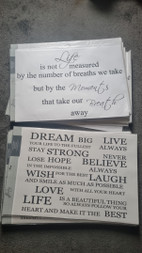 Life
is not measured
by the number of breaths we take
but by the Moments
that take our Breath
away
DREAM BIG LIVE
YOUR LIFE TO THE FULLEST ALWAYS
STAY STRONG NEVER
LOSE HOPE BELIEVE
IN THE IMPOSSIBLE ALWAYS
WISH FOR THE BEST LAUGH
AND SMILE AS MUCH AS POSSIBLE
LOVE WITH ALL YOUR HEART
LIFE IS A BEAUTIFUL THING
SO ALWAYS FOLLOW YOUR
HEART AND MAKE IT THE BEST